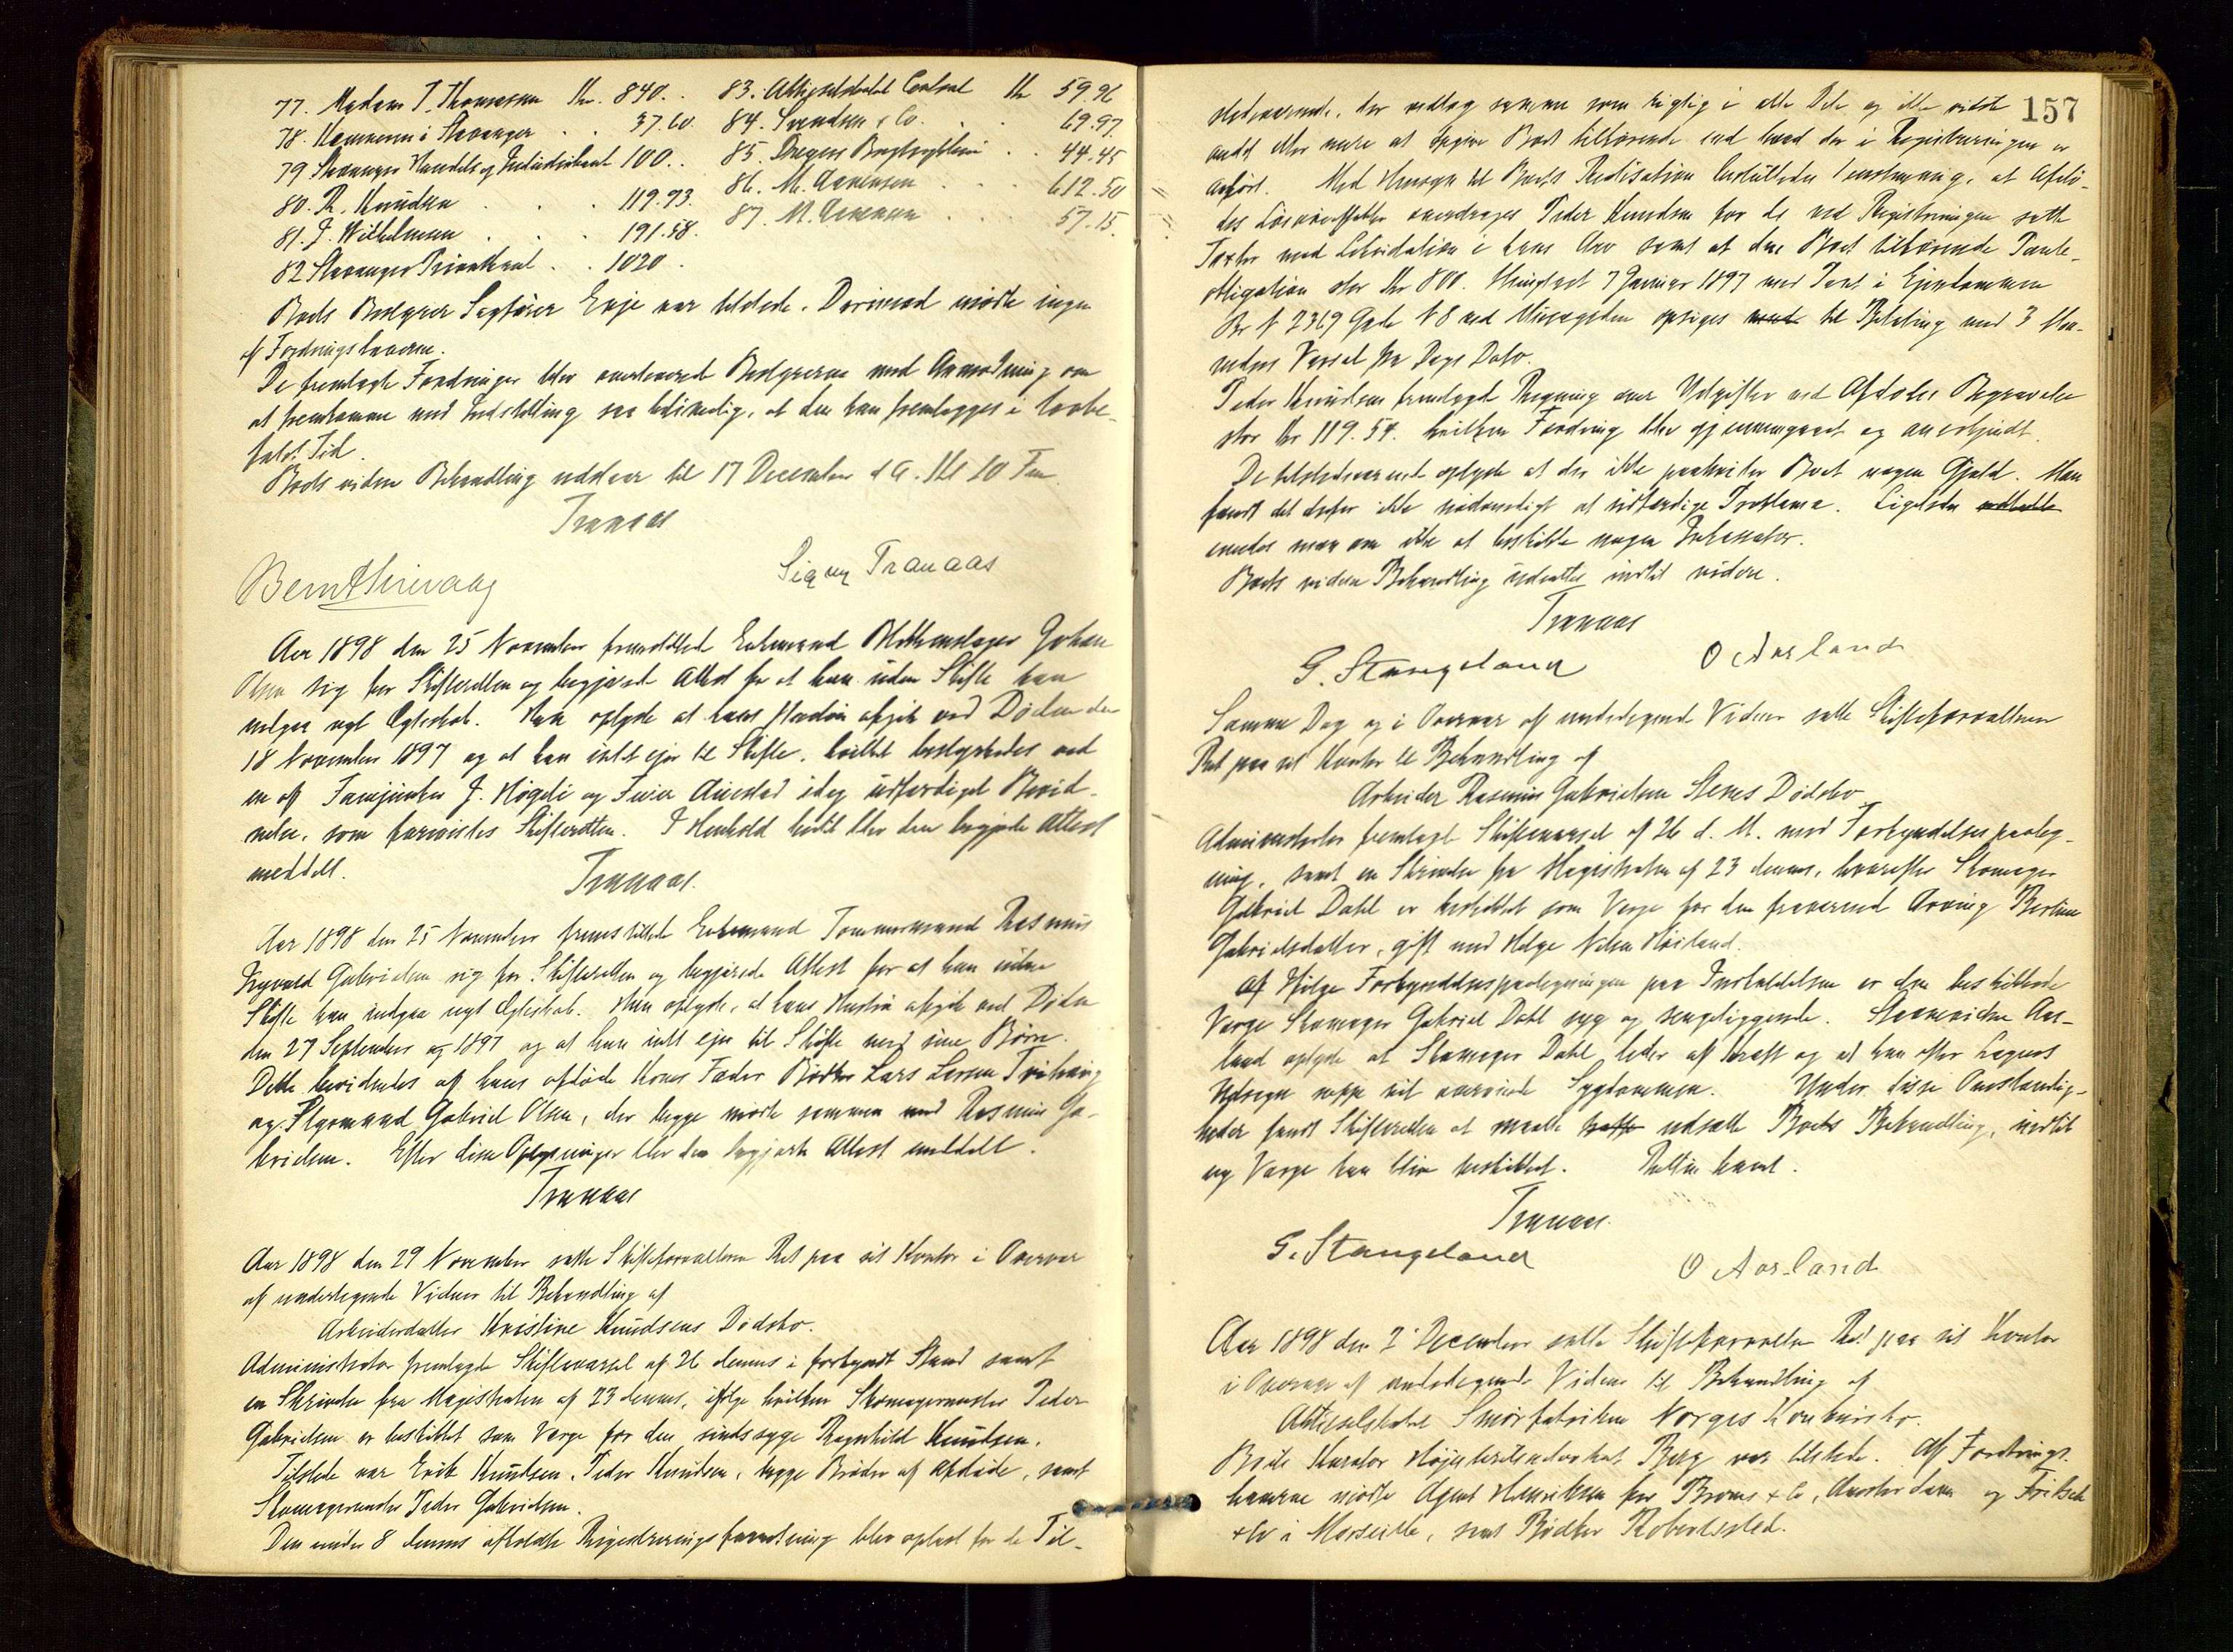 77. Madam T. Thomassen Kr. 840..
78. Kemneren i Stavanger . . 37.60.
79 Stavanger Handels og Industribank 100..
80. R. Knudsen . . . 119.93.
81. J. Wilhelmsen . . . 191.58.
82 Stavanger Privatbank . . 1020 .
83. Aktieselskabet Kr 59.96
84. Svendsen & Co. . . 69.97.
85. Dreyers Bogtrykkeri . . 44.45
86. M. . . . 612.50
87. M. . . . 57.15.
Boets Bestyrer Sagfører Eeje var tilstede. Derimod mødte ingen
af Fordringshaverne.
De fremlagte Fordringer blev overleveret Bestyreren med Anmodning om
at fremkomme med Indstilling saa betimelig, at den kan fremlægges i lovbe-
falet Tid.
Boets videre Behandling udsaaes til 17 December d. A. Kl 10 Fm.
Tranaas
Bernt Kirevaag
Signy Tranaas
Aar 1898 den 25 November fremstillede Enkemand Blikkenslager Johan
Olsen sig for Skifteretten og begjærede Attest for at han uden Skifte kan
indgaa nyt Ægteskab. Han oplyste at hans Hustru afgik ved Døden den
18 November 1897 og at han intet ejer til Skifte, hvilket bestyrkedes ved
en af J. Høgeli og idag udfærdiget Bevid-
nelse, som forevistes Skifteretten. I Henhold hertil blev den begjærte Attest
meddelt.
Tranaas.
Aar 1898 den 25 November fremstillede Enkemand Tømmermand Rasmus
Gabrielsen sig for Skifteretten og begjærede Attest for at han uden
Skifte kan indgaa nyt Ægteskab. Han oplyste, at hans Hustru afgik ved Døden
den 27 September 1897 og at han intet ejer til Skifte med sine Børn.
Dette bevidnedes af hans afdøde Kones Fader Bødker Lars Larsen
og Gabriel Olsen, der begge mødte sammen med Rasmus Ga-
brielsen. Efter disse Oplysninger blev den begjærte Attest meddelt.
Tranaas
Aar 1898 den 29 November satte Skifteforvalteren Ret paa sit Kontor i Overvær
af undertegnede Vidner til Behandling af
Arbeiderdatter Kristine Knudsens Dødsbo.
Administrator fremlagde Skiftevarsel af 26 dennes i forkyndt Stand samt
en Skrivelse fra Magistraten af 23 dennes, ifølge hvilken Skomagermester Peder
Gabrielsen er beskikket som Værge for den sindssyge Ragnhild Knudsen.
Tilstede var Erik Knudsen, Peder Knudsen, begge Brødre af Afdøde, samt
Skomagermester Peder Gabrielsen.
Den under 8 dennes afholdte Registreringsforretning blev oplæst for de Til-
157
stedeværende, der vedtog samme som rigtig i alle Dele og ikke vidste
andet eller mere at opgive Boet tilhørende end hvad der i Registreringen er
anført. Med Hensyn til Boets Realisation besluttedes enstemmig, at Afdø-
des Løsøreeffekter overdrages Peder Knudsen for de ved Registreringen satte
Taxter mod Likvidation i hans Arv samt at den Boet tilhørende Pante-
obligation stor Kr 800. thinglæst 7 Januar 1897 med Pant i Ejendommen
Br N 2369 Gade N 8 ved opsiges til Betaling med 3 Maa-
neders Varsel fra Dags Dato.
Peder Knudsen fremlagde Regning over Udgifter ved Afdødes Begravelse
stor Kr 119.54. hvilken Fordring blev gjennemgaaet og anerkjendt.
De tilstedeværende oplyste at der ikke paahviler Boet nogen Gjæld. Man
fandt det derfor ikke nødvendigt at udfærdige Proklama. Ligeledes
enedes man om ikke at beskikke nogen Inkassator.
Boets videre Behandling udsattes indtil videre.
Tranaas
G. Stangeland
O Aarland
Samme Dag og i Overvær af undertegnede Vidner satte Skifteforvalteren
Ret paa sit Kontor til Behandling af
Arbeider Rasmus Gabrielsen Dødsbo
Administrator fremlagde Skiftevarsel af 26 d. M. med Forkyndelsespaateg-
ning, samt en Skrivelse fra Magistraten af 23 dennes, hvorefter Skomager
Gabriel Dahl er beskikket som Værge for den fraværende Arving Bertine
Gabrielsdatter, gift med Helge Nilsen Høiland.
Ifølge Forkyndelsespaategningen paa Indkaldelsen er den beskikkede
Værge Skomager Gabriel Dahl syg og sengeliggende. Stævnevidne Aar-
land oplyste at Skomager Dahl lider af Kræft og at han efter Lægens
Udsagn neppe vil overvinde Sygdommen. Under disse Omstændig-
heder fandt Skifteretten at maatte udsætte Boets Behandling, indtil
ny Værge kan blive beskikket. Retten hævet.
Tranaas.
G. Stangeland
O Aarland
Aar 1898 den 2 December satte Skifteforvalter Ret paa sit Kontor
i Overvær af undertegnede Vidner til Behandling af
Aktieselskabet Smørfabriken Norges Konkursbo.
Boets Kurator Højesteretsadvokat Berg var tilstede. Af Fordrings-
haverne mødte Agent Henriksen for & Co, Amsterdam og
& Co i Marseille, samt Bødker Robertsted.